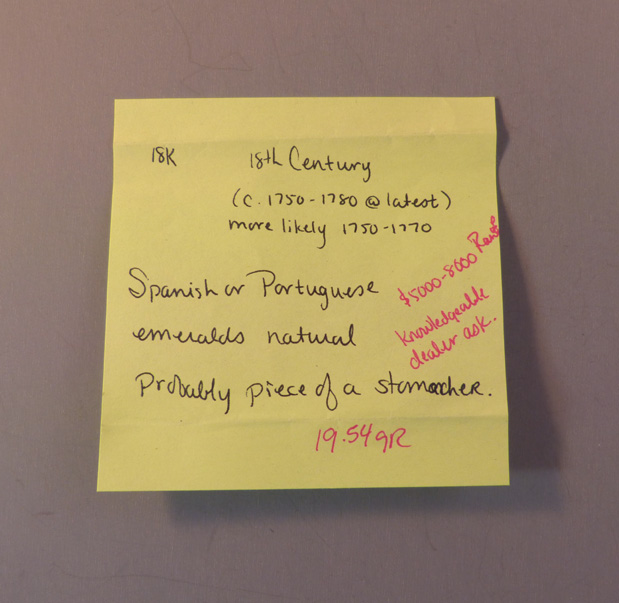 18K 18th Century
(c. 1750-1780 @ latest)
more likely 1750-1770
Spanish or Portuguese
emeralds natural
Probably piece of a stomacher.
$5000-8000 Range
knowledgeable
dealer ask.
19.54gR